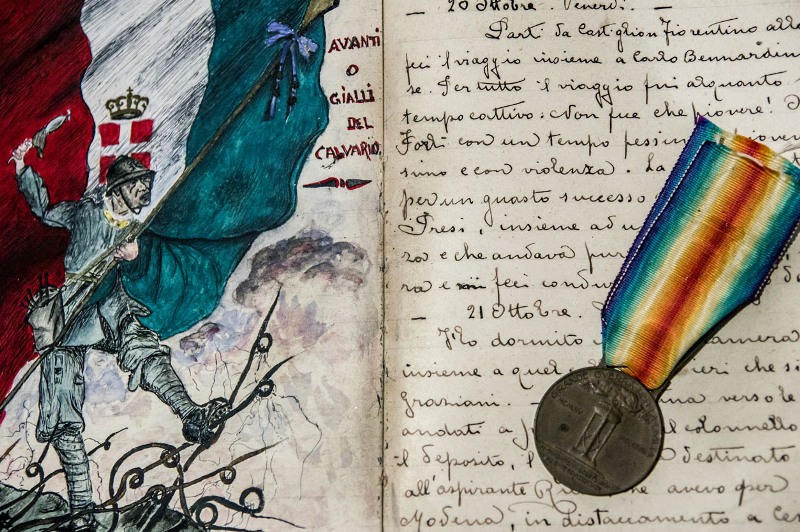 AVANTI
O
GIALLI
DEL
CALVARIO
— 20 Ottobre. Venerdì. —
Parti da Castiglion Fiorentino alle
feci il viaggio insieme a Carlo Bernardin
se. Per tutto il viaggio fui alquanto
tempo cattivo: Non fece che piovere!
Forlì con un tempo pessim
simo e con violenza. La
per un guasto successo
Presi, insieme ad u
za e che andava pur
ra e feci condu
— 21 Ottobre.
Ho dormito camera
insieme a quel eri che si
Graziani. na verso le
andati a l colonnello
il deposito, destinato
all'aspirante he avevo per
Modena, in distaccamento a